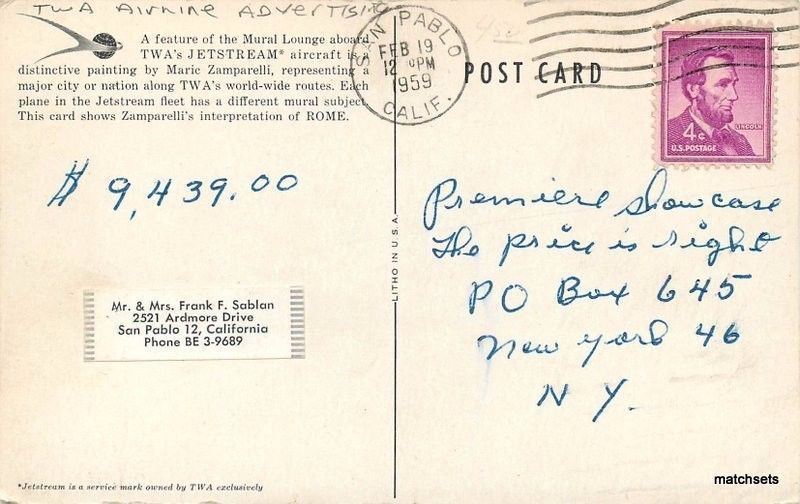 TWA Airline Advertising
A feature of the Mural Lounge aboard
TWA's JETSTREAM* aircraft is a
distinctive painting by Mario Zamparelli, representing a
major city or nation along TWA's world-wide routes. Each
plane in the Jetstream fleet has a different mural subject.
This card shows Zamparelli's interpretation of ROME.
SAN PABLO
FEB 19
12 PM
1959
CALIF.
POST CARD
4¢
LINCOLN
U.S. POSTAGE
$ 9,439.00
Mr. & Mrs. Frank F. Sablan
2521 Ardmore Drive
San Pablo 12, California
Phone BE 3-9689
LITHO IN U.S.A.
Premiere Showcase
The price is right
PO Box 645
New York 46
N Y.
*Jetstream is a service mark owned by TWA exclusively
matchsets